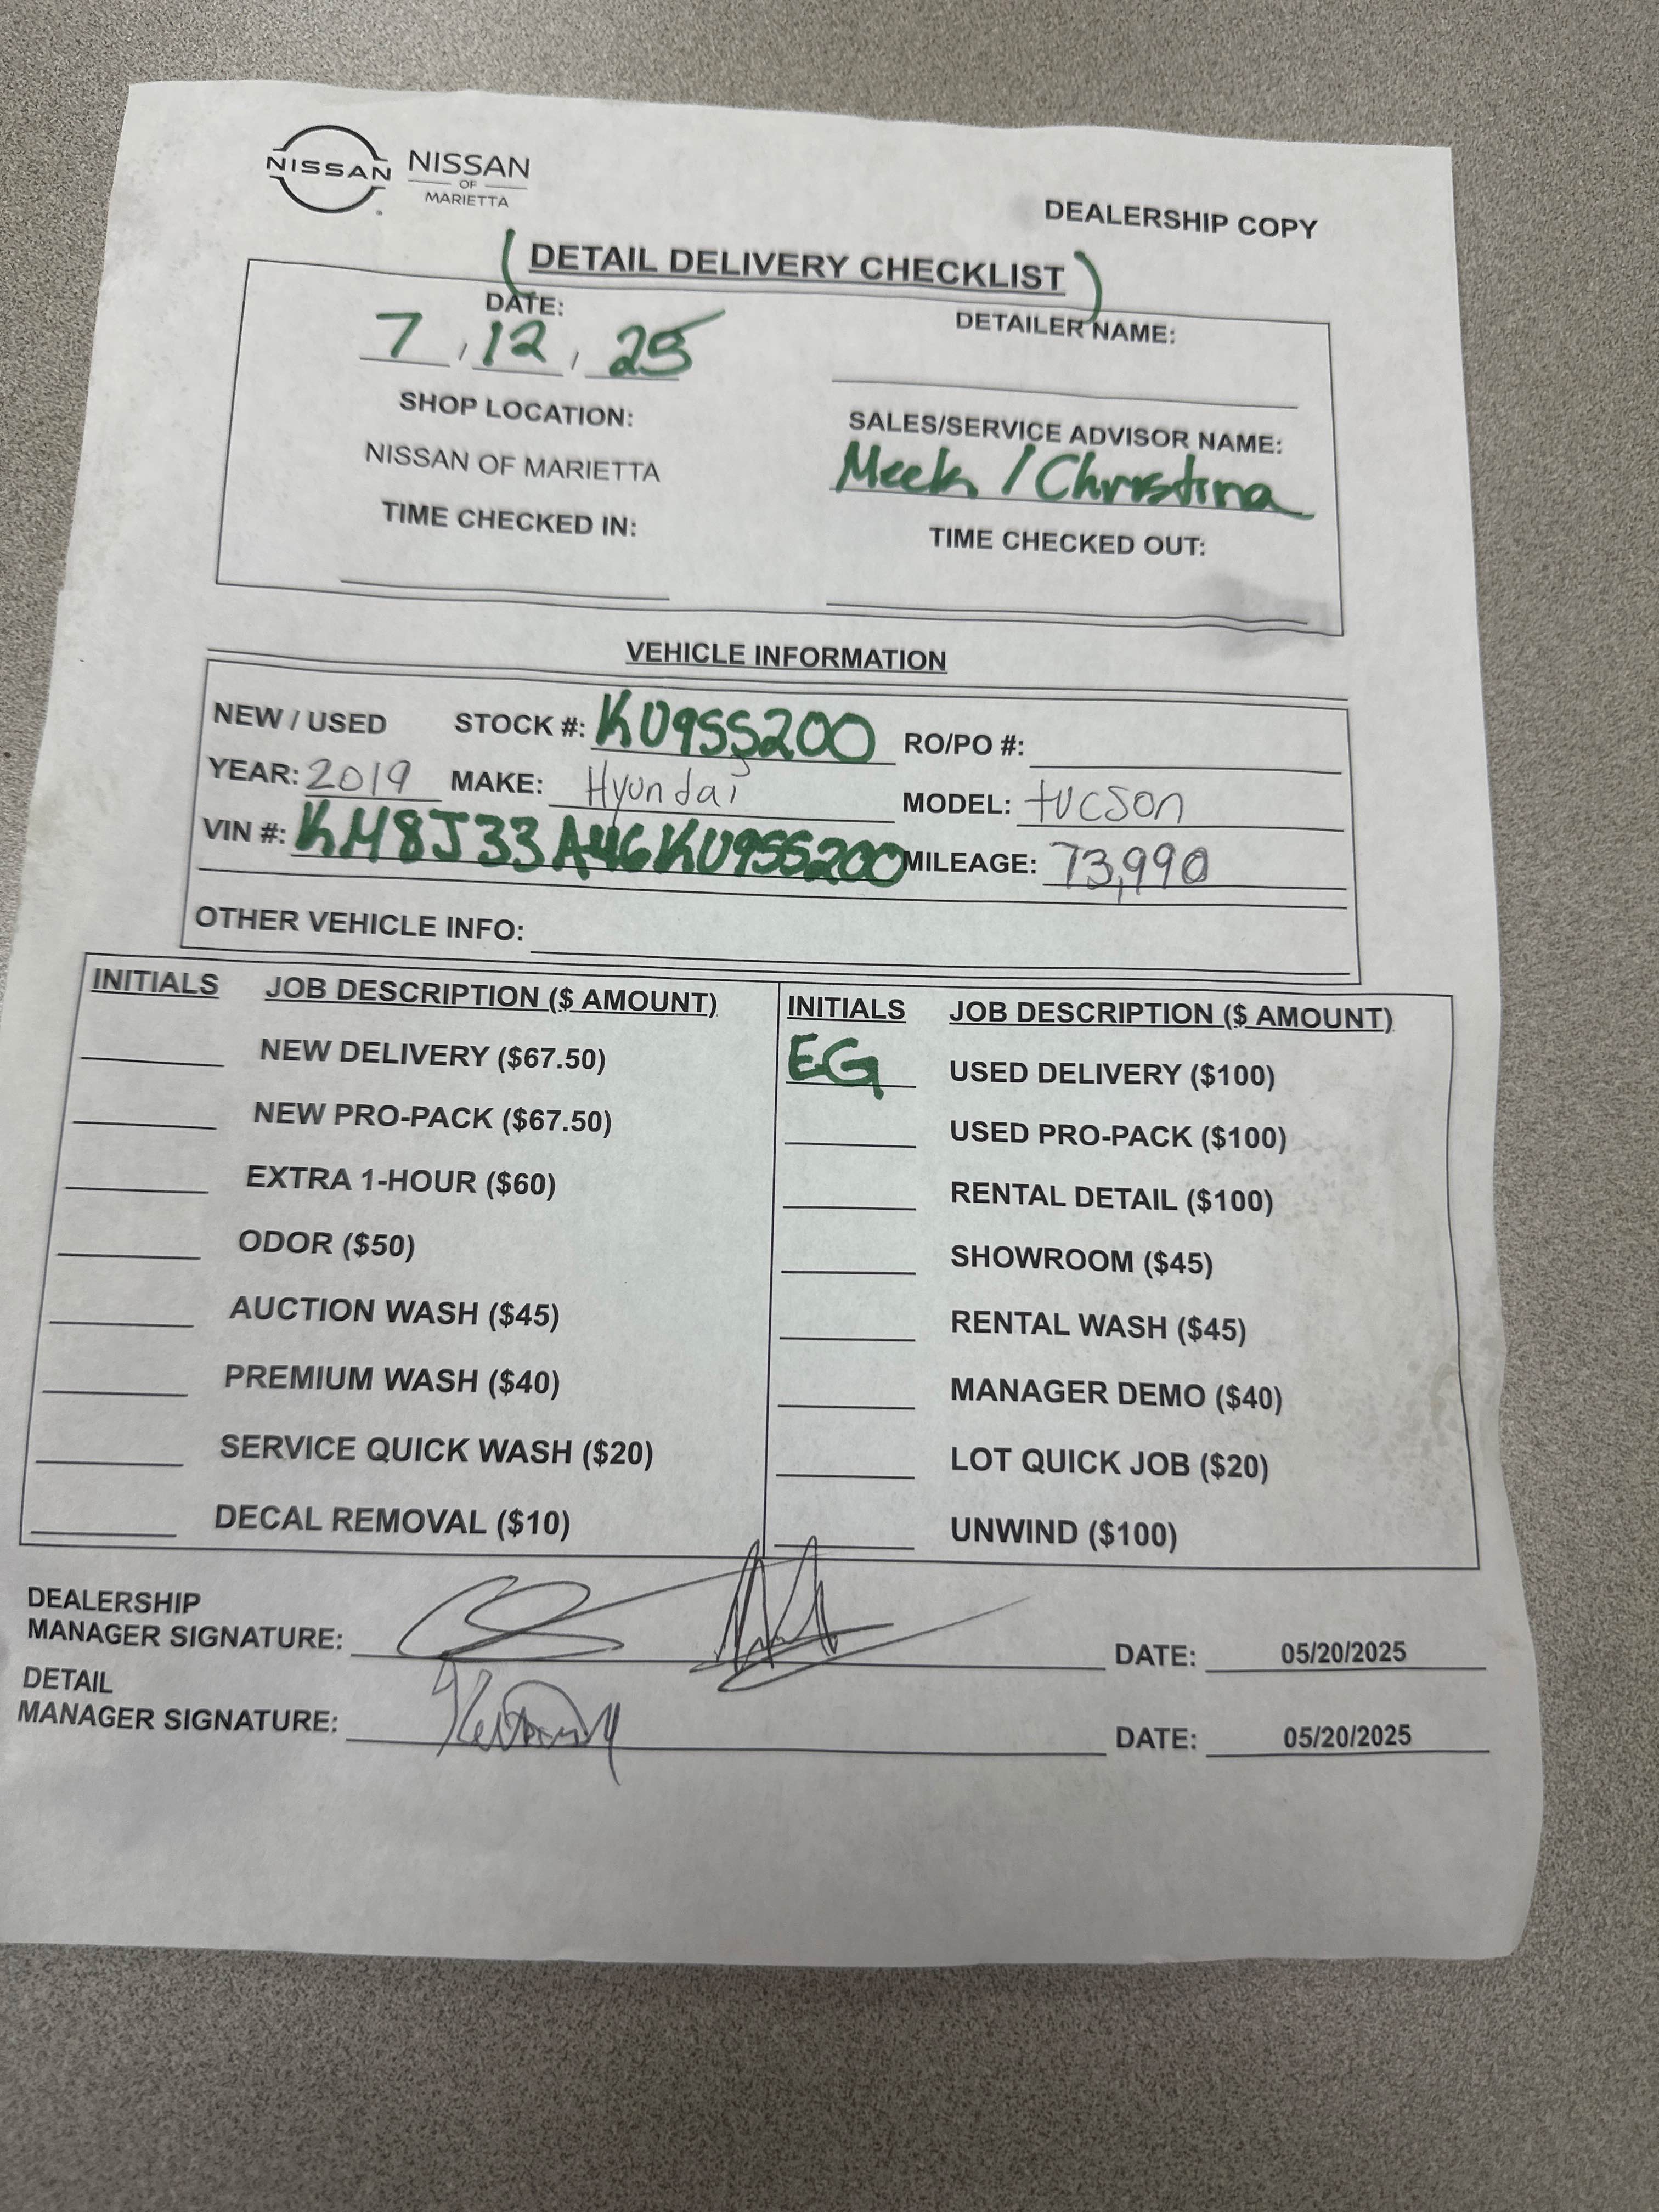 NISSAN NISSAN
OF
MARIETTA
DEALERSHIP COPY
DETAIL DELIVERY CHECKLIST
DATE: DETAILER NAME:
7 , 12 , 25
SHOP LOCATION: SALES/SERVICE ADVISOR NAME:
NISSAN OF MARIETTA Meek / Christina
TIME CHECKED IN: TIME CHECKED OUT:
VEHICLE INFORMATION
NEW / USED STOCK #: KU955200 RO/PO #:
YEAR: 2019 MAKE: Hyundai MODEL: tucson
VIN #: KM8J33A46KU955200 MILEAGE: 73,990
OTHER VEHICLE INFO:
INITIALS JOB DESCRIPTION ($ AMOUNT) INITIALS JOB DESCRIPTION ($ AMOUNT)
NEW DELIVERY ($67.50) EG USED DELIVERY ($100)
NEW PRO-PACK ($67.50) USED PRO-PACK ($100)
EXTRA 1-HOUR ($60) RENTAL DETAIL ($100)
ODOR ($50) SHOWROOM ($45)
AUCTION WASH ($45) RENTAL WASH ($45)
PREMIUM WASH ($40) MANAGER DEMO ($40)
SERVICE QUICK WASH ($20) LOT QUICK JOB ($20)
DECAL REMOVAL ($10) UNWIND ($100)
DEALERSHIP
MANAGER SIGNATURE: DATE: 05/20/2025
DETAIL
MANAGER SIGNATURE: DATE: 05/20/2025